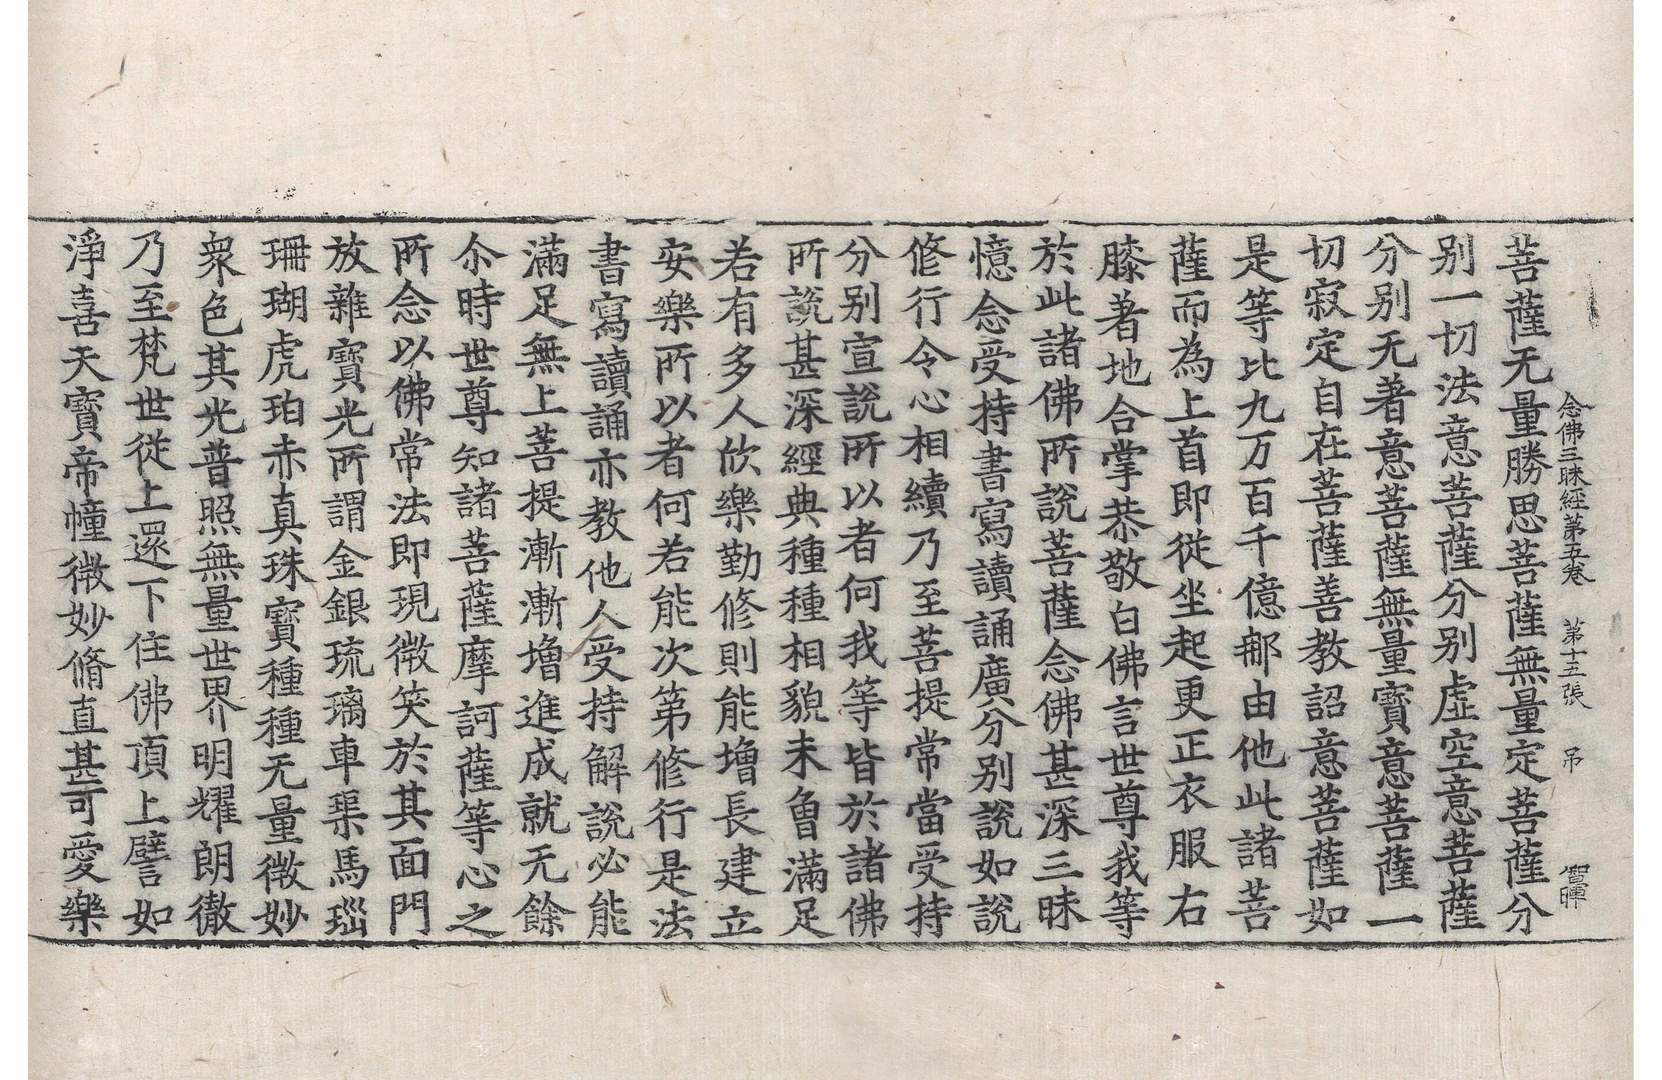 念佛三昧經第五卷　第十五張　吊　智暉
菩薩无量勝思菩薩無量定菩薩分
别一切法意菩薩分别虚空意菩薩
分别无著意菩薩無量寳意菩薩一
切寂定自在菩薩善教詔意菩薩如
是等比九万百千億郍由他此諸菩
薩而為上首即從坐起更正衣服右
膝著地合掌恭敬白佛言世尊我等
於此諸佛所說菩薩念佛甚深三昧
憶念受持書寫讀誦廣分别說如說
修行令心相續乃至菩提常當受持
分别宣說所以者何我等皆於諸佛
所說甚深經典種種相貌未曽滿足
若有多人欣樂勤修則能增長建立
安樂所以者何若能次第修行是法
書寫讀誦亦教他人受持解說必能
滿足無上菩提漸漸增進成就无餘
尒時世尊知諸菩薩摩訶薩等心之
所念以佛常法即現微笑於其面門
放雜寶光所謂金銀琉璃車𤦲馬瑙
珊瑚虎珀赤真珠寶種種无量微妙
衆色其光普照無量世界明耀朗徹
乃至梵世從上還下住佛頂上譬如
淨喜天寶帝幢微妙脩直甚可愛樂